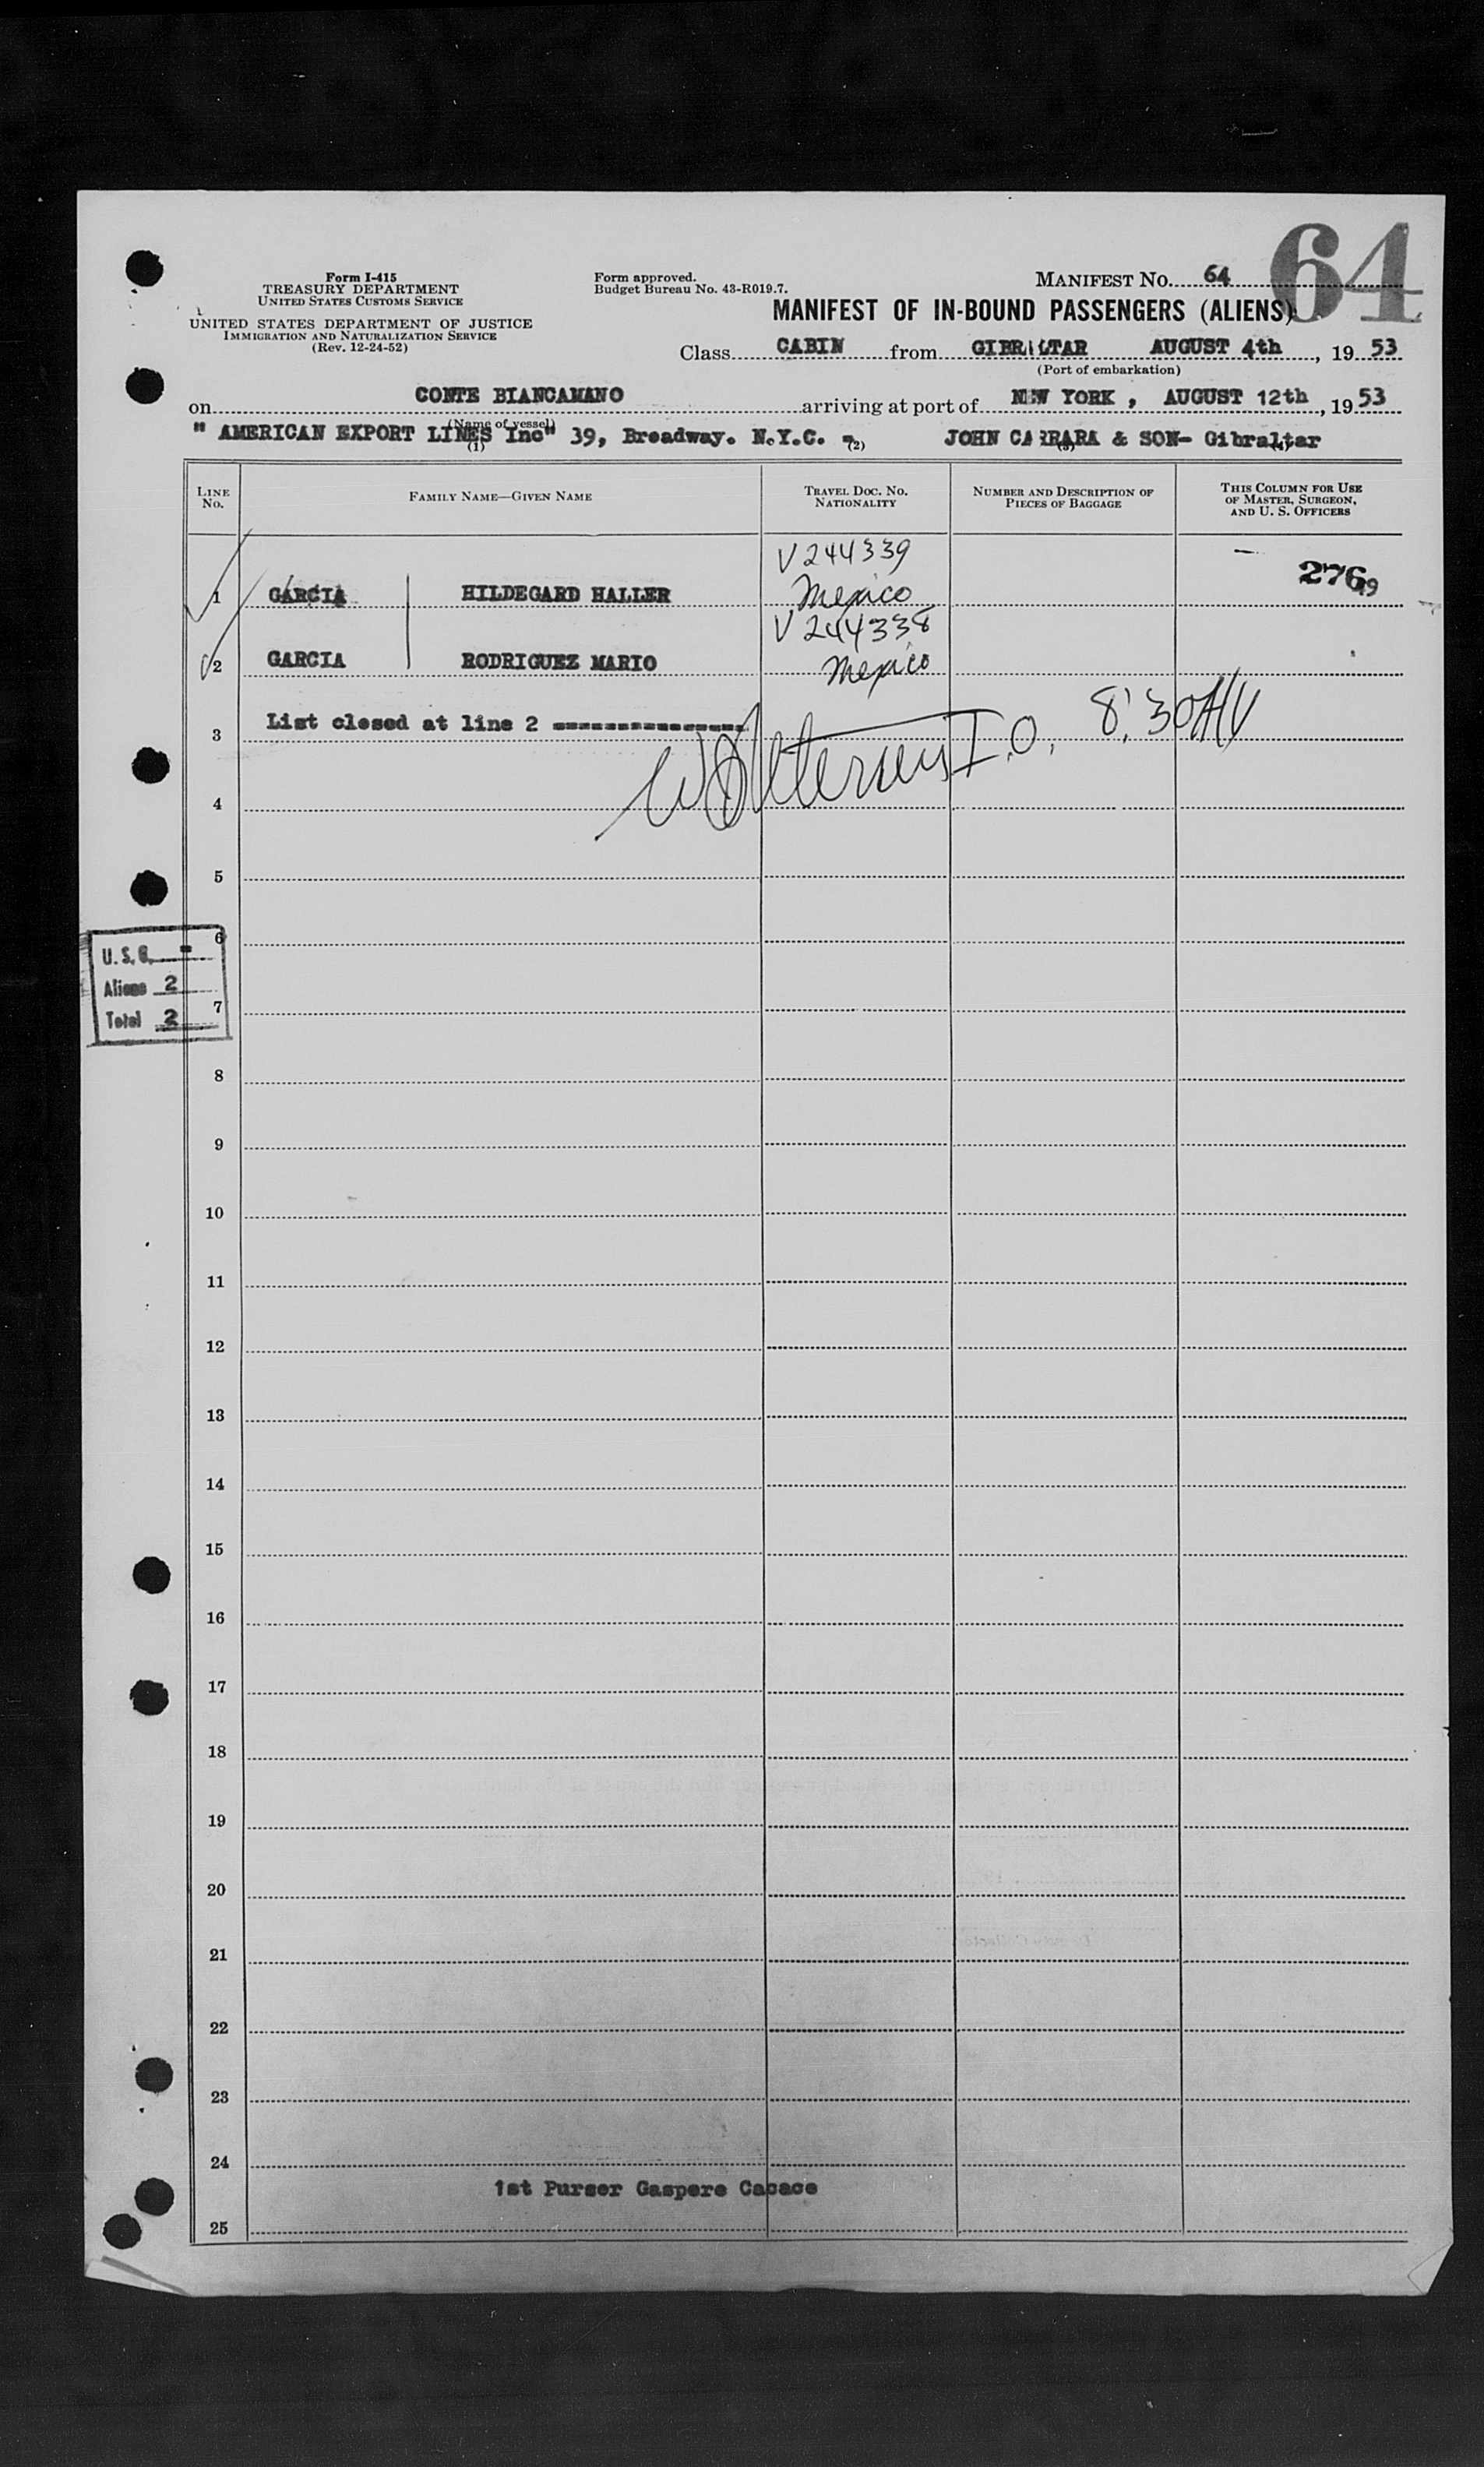 64
Form I-415
TREASURY DEPARTMENT
UNITED STATES CUSTOMS SERVICE
UNITED STATES DEPARTMENT OF JUSTICE
IMMIGRATION AND NATURALIZATION SERVICE
(Rev. 12-24-52)
Form approved.
Budget Bureau No. 43-R019.7.
MANIFEST No. 64
MANIFEST OF IN-BOUND PASSENGERS (ALIENS)
Class CABIN from GIBRALTAR AUGUST 4th, 1953
(Port of embarkation)
on CONTE BIANCAMANO arriving at port of NEW YORK, AUGUST 12th, 1953
(Name of vessel)
" AMERICAN EXPORT LINES Inc" 39, Broadway. N.Y.C. - JOHN CARRARA & SON- Gibraltar
(1) (2) (3) (4)
LINE No. FAMILY NAME—GIVEN NAME TRAVEL DOC. NO. NATIONALITY NUMBER AND DESCRIPTION OF PIECES OF BAGGAGE THIS COLUMN FOR USE OF MASTER, SURGEON, AND U. S. OFFICERS
V244339
1 GARCIA HILDEGARD HALLER Mexico 276
V244338
2 GARCIA RODRIGUEZ MARIO Mexico
3 List closed at line 2 ----------------
I.O. 8:30 AM
4
5
6
U. S. C. -
Aliens 2
7
Total 2
8
9
10
11
12
13
14
15
16
17
18
19
20
21
22
23
24
1st Purser Gaspere Cacace
25